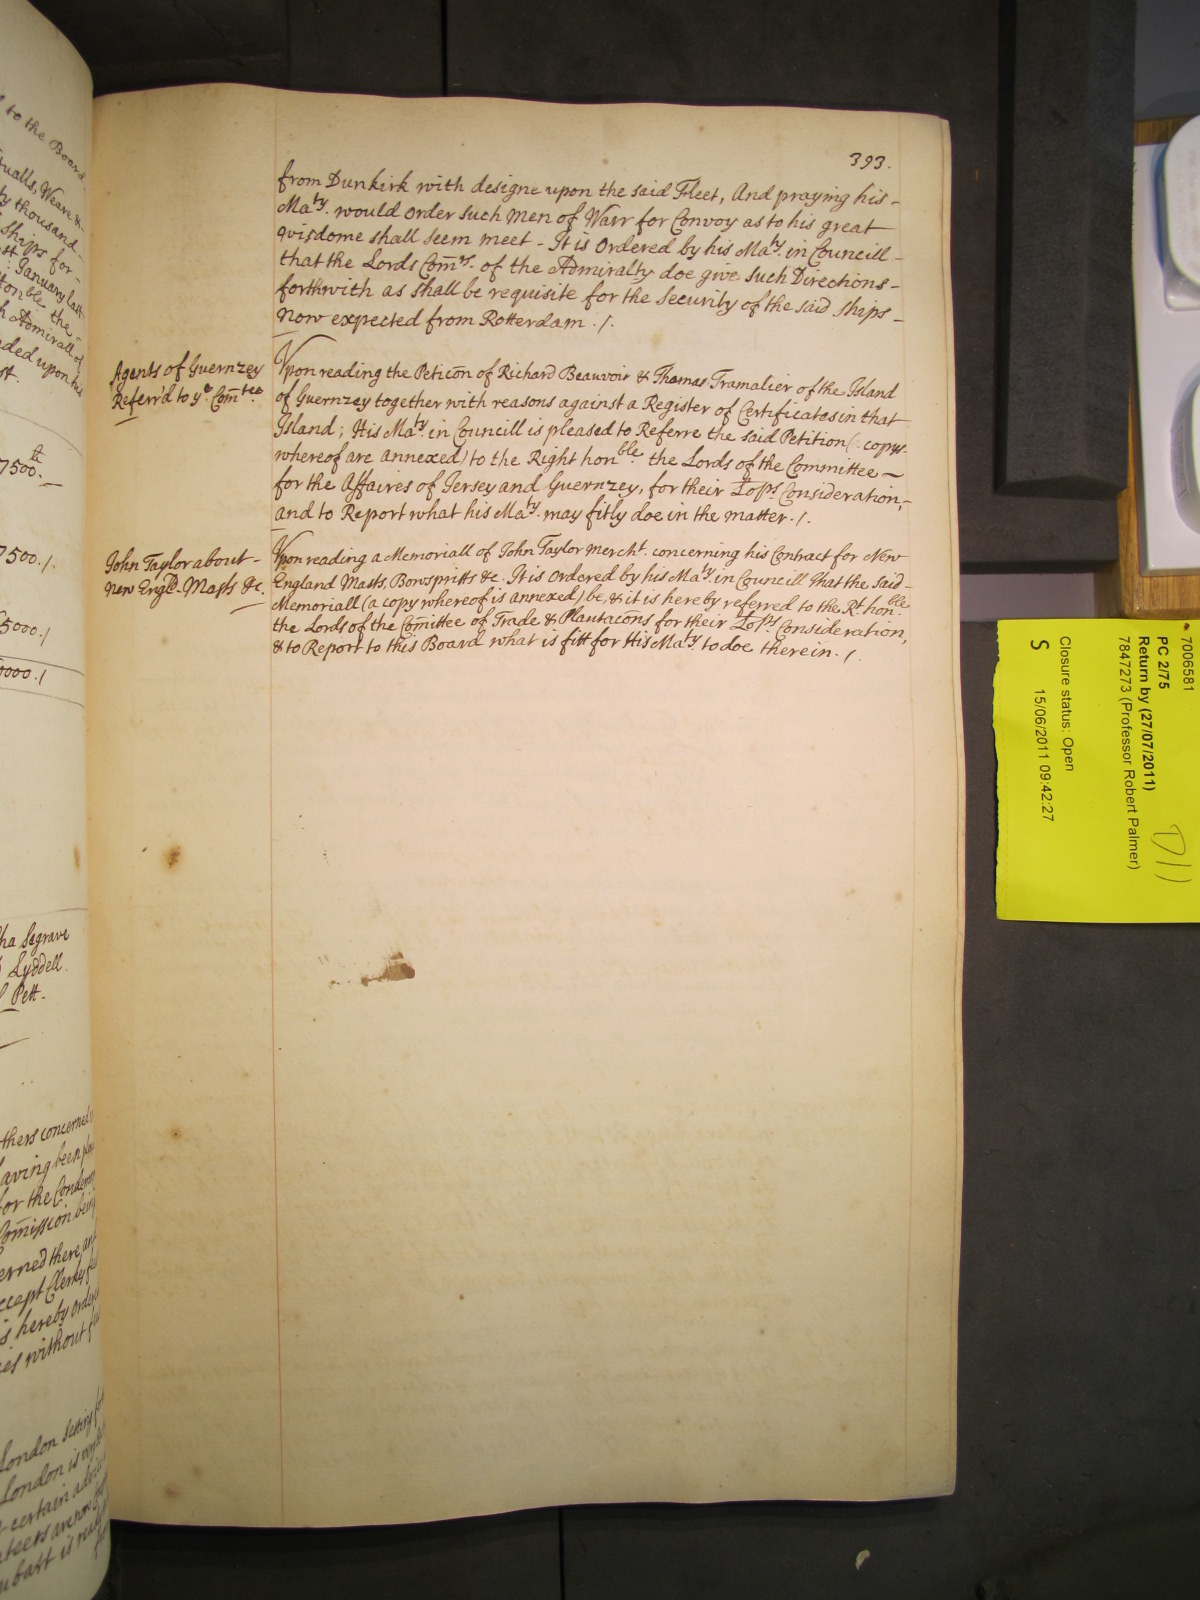 393.
from Dunkirk with designe upon the said Fleet, And praying his -
Ma.ty would order such Men of Warr for Convoy as to his great
wisdome shall seem meet - It is Ordered by his Ma.ty in Councill -
that the Lords Com̄.rs of the Admiralty doe give such Directions -
forthwith as shall be requisite for the security of the said ships -
now expected from Rotterdam ./.
Agents of Guernzey
Referr'd to y.e Com̄.tee
Upon reading the Peticōn of Richard Beauvoir & Thomas Tramalier of the Island
of Guernzey together with reasons against a Register of Certificates in that
Island; His Ma.ty in Councill is pleased to Referre the said Petition (: copys
whereof are annexed) to the Right hon.ble the Lords of the Committee -
for the Affaires of Jersey and Guernzey, for their Lo.ps Consideration,
and to Report what his Ma.ty may fitly doe in the matter ./.
John Taylor about -
New Engl.d Masts &c.
Upon reading a Memoriall of John Taylor Merch.t concerning his Contract for New
England Masts, Bowspritts &c. It is Ordered by his Ma.ty in Councill that the said -
Memoriall (a copy whereof is annexed) be, & it is hereby referred to the R.t hon.ble
the Lords of the Com̄ittee of Trade & Plantacōns for their Lo.ps Consideration,
& to Report to this Board what is fitt for His Ma.ty to doe therein ./.
to the Board
Weare &
ty thousand
Ships for
January last
the
Admirall of
ded upon his
7500.
7500./.
5000./
0000./
Segrave
Lyddell
Pett.
thers concerned
aving been
for the
Com̄ission
erned there,
ccept Clerkes
is hereby
without
London
London is
certain
is
7006581
PC 2/75
Return by (27/07/2011)
7847273 (Professor Robert Palmer)
Closure status: Open
S 15/06/2011 09:42:27
D11